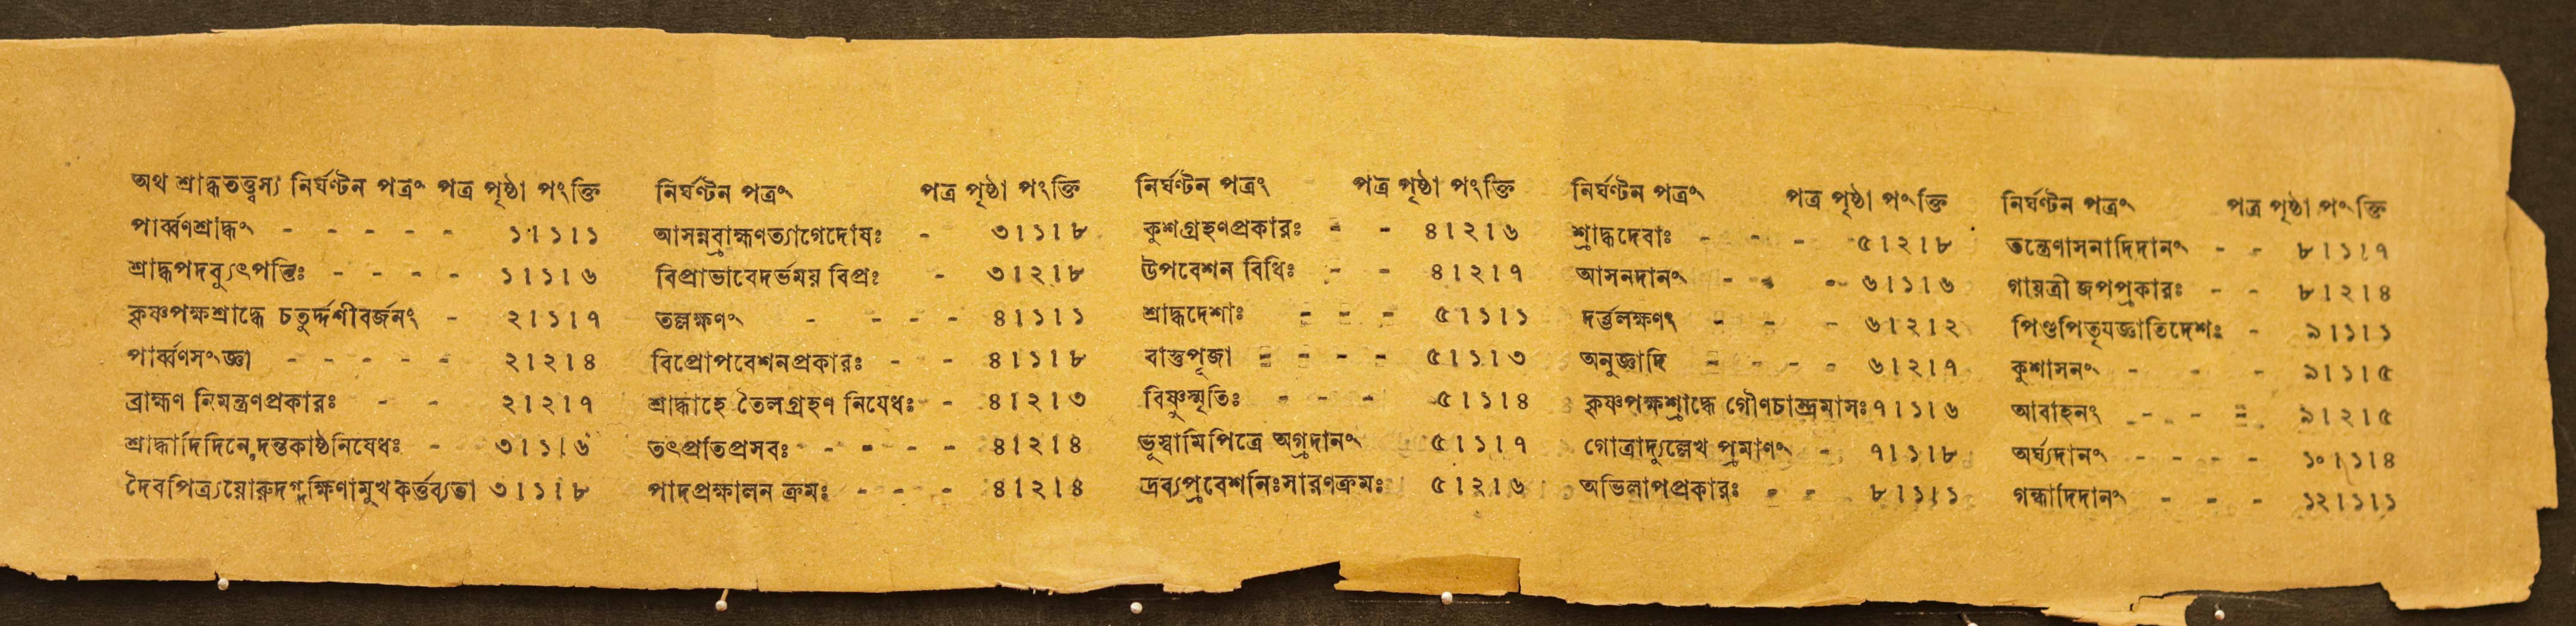 অথ শ্রাদ্ধতত্ত্বস্য নির্ঘণ্টন পত্রং পত্র পৃষ্ঠা পংক্তি
পার্ব্বণশ্রাদ্ধং - - - - - ১।১।১
শ্রাদ্ধপদব্যুৎপত্তিঃ - - - - ১।১।৬
কৃষ্ণপক্ষশ্রাদ্ধে চতুর্দ্দশীবর্জনং - ২।১।৭
পার্ব্বণসংজ্ঞা - - - - - ২।২।৪
ব্রাহ্মণ নিমন্ত্রণপ্রকারঃ - - ২।২।৭
শ্রাদ্ধাদিদিনে দন্তকাষ্ঠনিষেধঃ - ৩।১।৬
দৈবপিত্র্যয়োরুদগ্দক্ষিণামুখকর্ত্তব্যতা ৩।১।৮
নির্ঘণ্টন পত্রং পত্র পৃষ্ঠা পংক্তি
আসন্নব্রাহ্মণত্যাগেদোষঃ - ৩।১।৮
বিপ্রাভাবেদর্ভময় বিপ্রঃ - - ৩।২।৮
তল্লক্ষণং - - - - ৪।১।১
বিপ্রোপবেশনপ্রকারঃ - - ৪।১।৮
শ্রাদ্ধাহে তৈলগ্রহণ নিষেধঃ - ৪।২।৩
তৎপ্রতিপ্রসবঃ - - - - ৪।২।৪
পাদপ্রক্ষালন ক্রমঃ - - - ৪।২।৪
নির্ঘণ্টন পত্রং পত্র পৃষ্ঠা পংক্তি
কুশগ্রহণপ্রকারঃ - - ৪।২।৬
উপবেশন বিধিঃ - - ৪।২।৭
শ্রাদ্ধদেশাঃ - - - ৫।১।১
বাস্তুপূজা - - - - ৫।১।৩
বিষ্ণুস্মৃতিঃ - - - ৫।১।৪
ভূস্বামিপিত্রে অগ্রদানং ৫।১।৭
দ্রব্যপ্রবেশনিঃসারণক্রমঃ ৫।২।৬
নির্ঘণ্টন পত্রং পত্র পৃষ্ঠা পংক্তি
শ্রাদ্ধদেবাঃ - - - ৫।২।৮
আসনদানং - - - ৬।১।৬
দর্ভলক্ষণং - - - ৬।২।২
অনুজ্ঞাদি - - - - ৬।২।৭
কৃষ্ণপক্ষশ্রাদ্ধে গৌণচান্দ্রমাসঃ ৭।১।৬
গোত্রাদ্যুল্লেখ প্রমাণং - ৭।১।৮
অভিলাপপ্রকারঃ - - ৮।১।১
নির্ঘণ্টন পত্রং পত্র পৃষ্ঠা পংক্তি
তন্ত্রেণাসনাদিদানং - - ৮।১।৭
গায়ত্রী জপপ্রকারঃ - - ৮।২।৪
পিণ্ডপিতৃযজ্ঞাতিদেশঃ - ৯।১।১
কুশাসনং - - - ৯।১।৫
আবাহনং - - - ৯।২।৫
অর্ঘ্যদানং - - - - ১০।১।৪
গন্ধাদিদানং - - - ১২।১।১